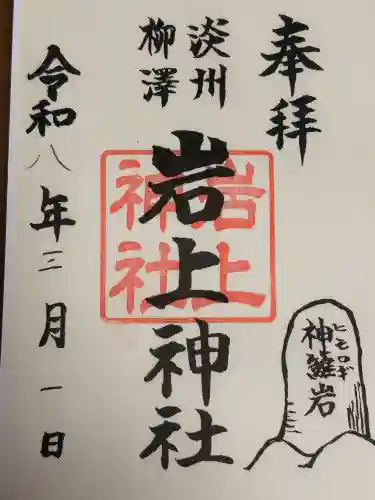 奉拝
淡州
柳澤
岩上神社
岩上神社
ヒモロギ
神籬岩
令和八年三月一日